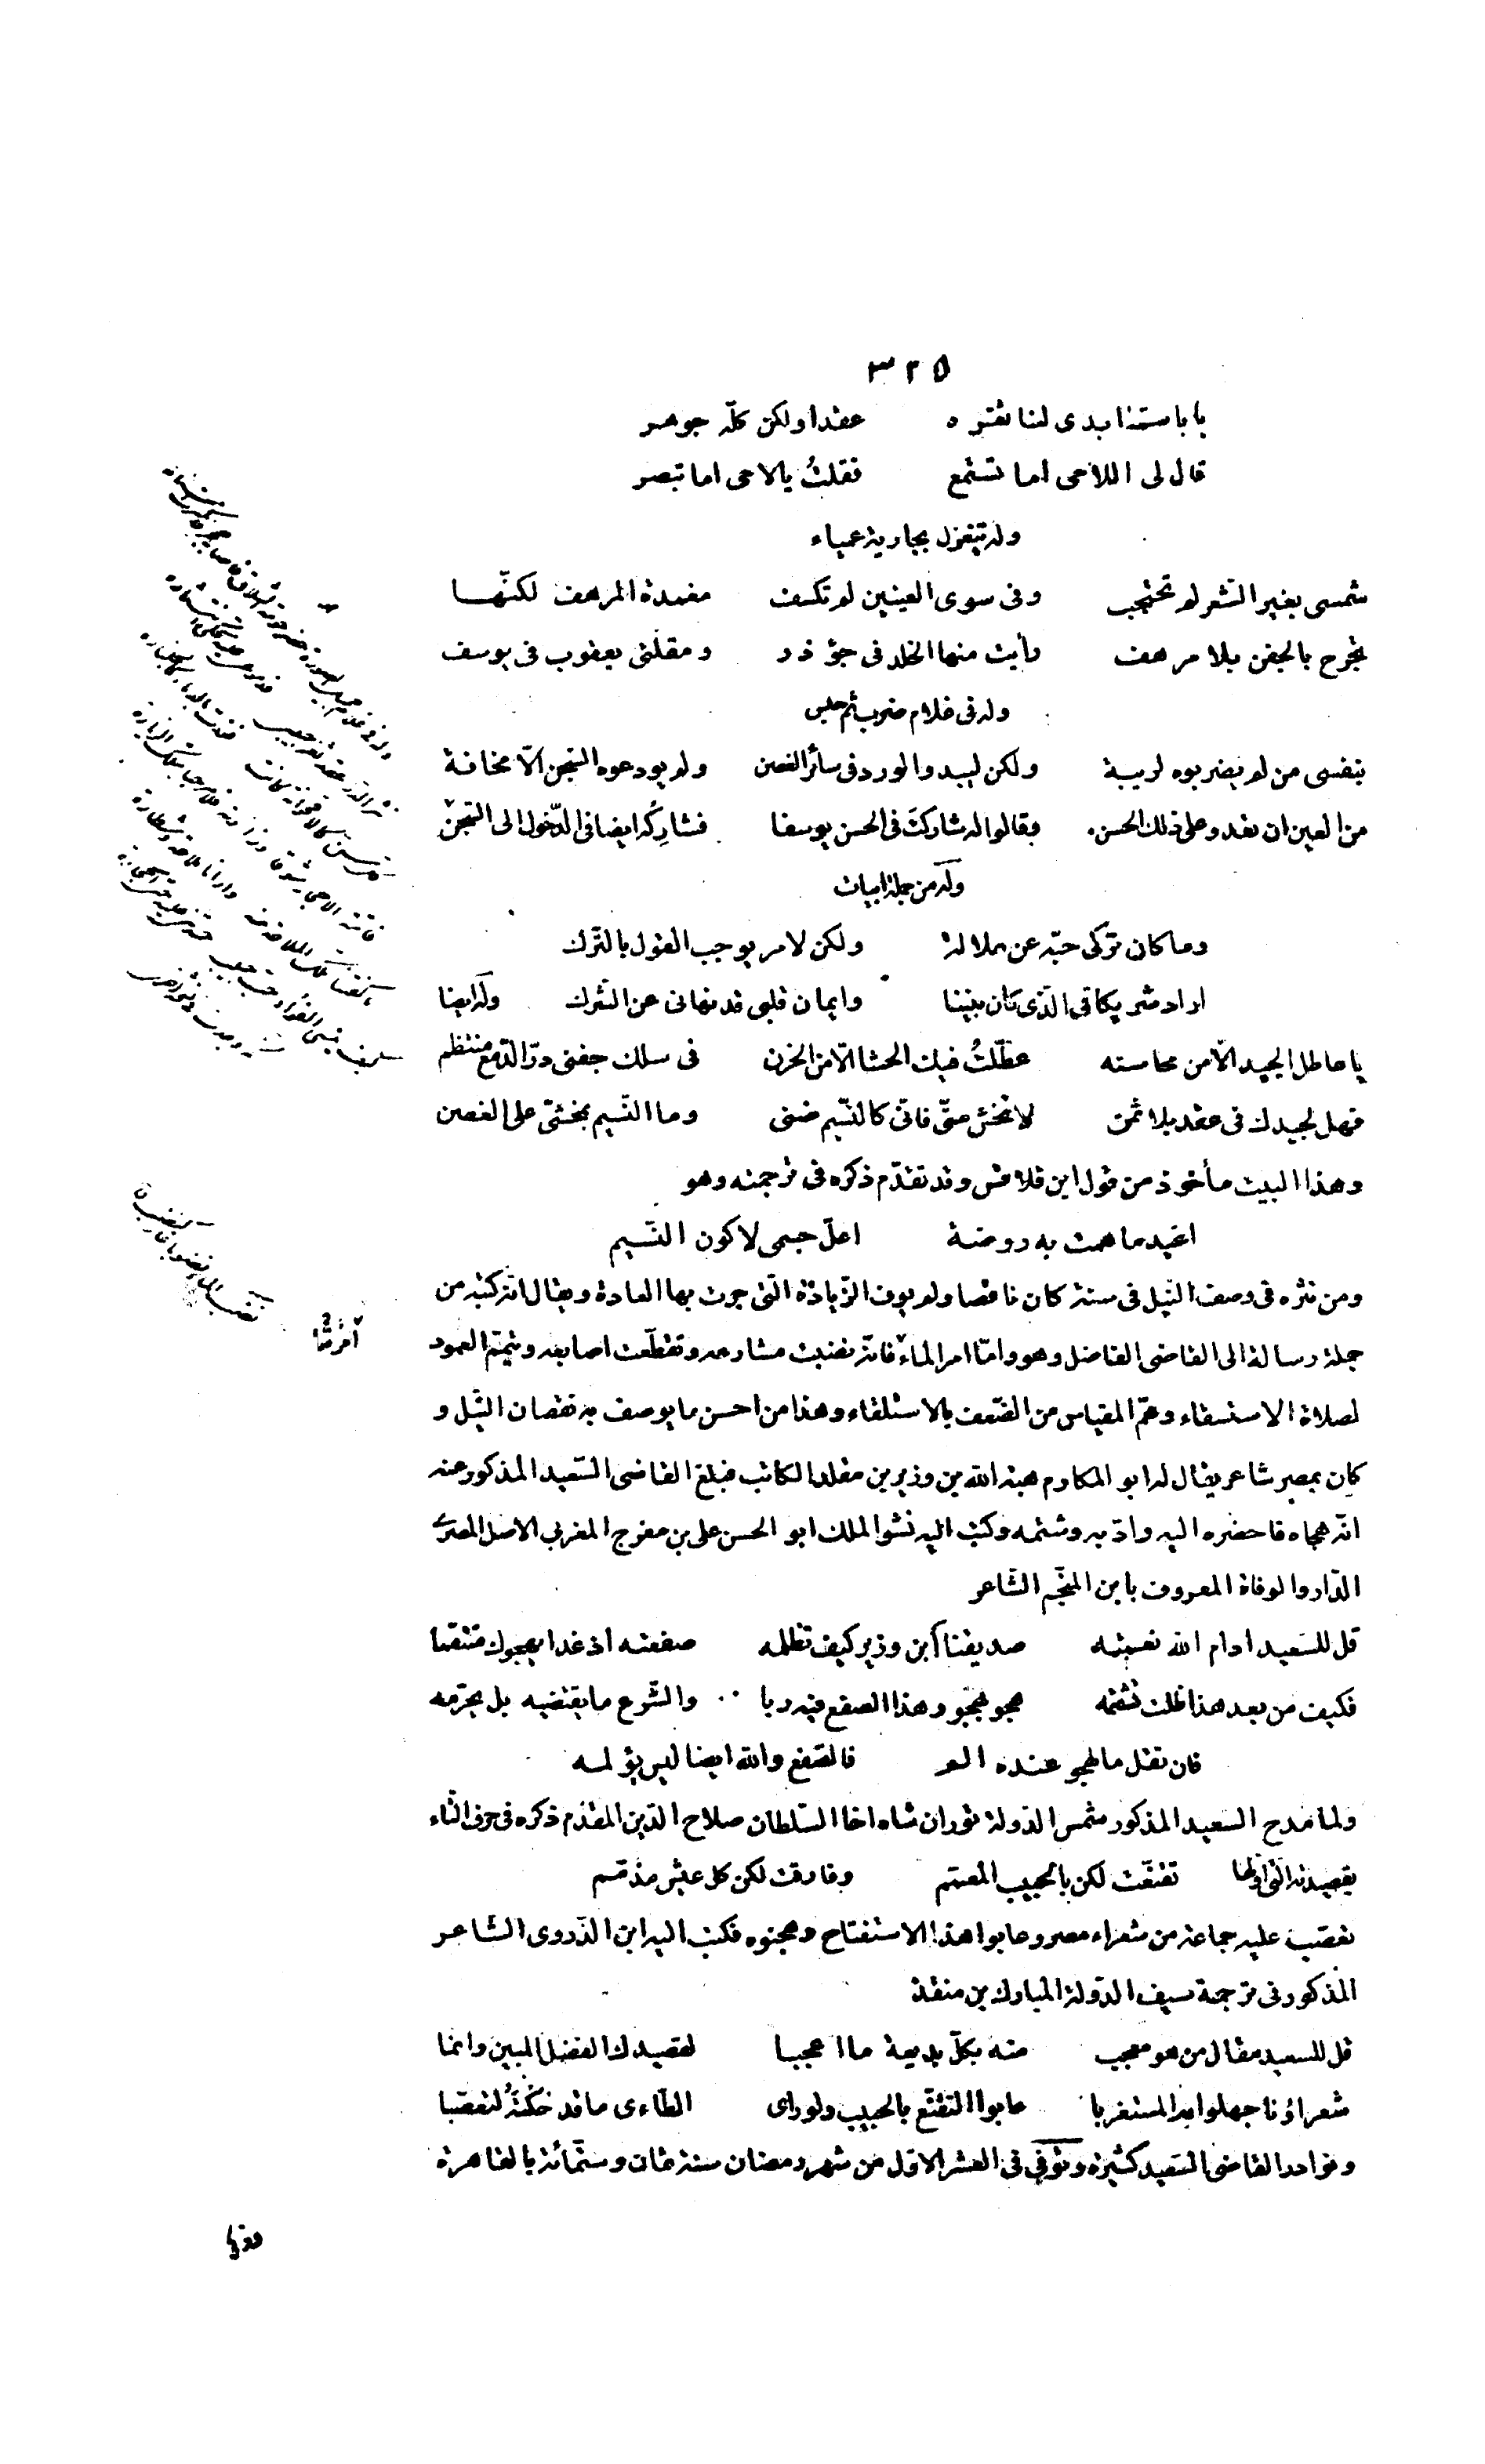 ٣٢٥
يا باسما ابدى لنا ثغره عقدا ولكن كلّه جوهر
قال لى اللاحى اما تستمع فقلتُ يالاحى اما تبصر
وله يتغزل بجارية عمياء
شمسى بغير الشعر لم تحتجب وفى سوى العينين لم تكسف مغمدة المرهف لكنّها
تجرح بالجفن بلا مرهف رأيت منها الخلد فى جؤذر ومقلتى يعقوب فى يوسف
وله فى غلام ضرب ثم حبس
بنفسى من لم يضربوه لريبة ولكن ليبدو الورد فى سائر الغصن ولم يودعوه السّجن الّا مخافة
من العين ان تعدو على ذلك الحسن وقالوا له شاركت فى الحسن يوسفا فشاركه ايضا فى الدّخول الى السّجن
وله من جملة ابيات
وما كان تركى حبّه عن ملالة ولكن لامر يوجب القول بالتّرك
اراد شريكا فى الّذى كان بيننا وايمان قلبى قد نهانى عن الشّرك وله ايضا
يا عاطل الجيد الّا من محاسنه عطّلتُ فيك الحشا الّا من الحزن فى سلك جفنى درّ الدّمع منتظم
فهل لجيدك فى عقد بلا ثمن لا تخش منّى فانّى كالنّسيم ضنى وما النّسيم بمخشىّ على الغصن
وهذا البيت مأخوذ من قول ابن قلاقس وقد تقدّم ذكره فى ترجمته وهو
اغيد ما همت به روضة اعلّ جسمى لاكون النّسيم
ومن نثره فى وصف النّيل فى سنة كان ناقصا ولم يوف الزّيادة الّتى جرت بها العادة ويقال انّه كتبه من
جملة رسالة الى القاضى الفاضل وهو وامّا امر الماء فانّه نضبت مشارعه وتقطّعت اصابعه وتيمّم العمود
لصلاة الاستسقاء وهمّ المقياس من الضّعف بالاستلقاء وهذا من احسن ما يوصف به نقصان النّيل و
كان بمصر شاعر يقال له ابو المكارم هبة الله بن وزير بن مقلد الكاتب فبلغ القاضى السّعيد المذكور عنه
انّه هجاه فاحضره اليه وادّبه وشتمه وكتب اليه نشو الملك ابو الحسن على بن مفرج المغربى الاصل المصرى
الدّار والوفاة المعروف بابن المنجّم الشّاعر
قل للسّعيد ادام الله نعمته صديقنا ابن وزير كيف تظلمه صفعته اذ غدا يهجوك منتقما
فكيف من بعد هذا ظلت تشتمه هجو بهجو وهذا الصفع فيه ربا والشّرع ما يقتضيه بل يحرّمه
فان تقل ما لهجو عنده الم فالصّفع والله ايضا ليس يؤلمه
ولما مدح السّعيد المذكور شمس الدّولة توران شاه اخا السّلطان صلاح الدّين المقدّم ذكره فى حرف التّاء
بقصيدته الّتى اوّلها تقنّعت لكن بالحبيب المعمّم وفارقت لكن كل عيش مذمّم
تعصّب عليه جماعة من شعراء مصر وعابوا هذا الاستفتاح وهجنوه فكتب اليه ابن الذّروى الشاعر
المذكور فى ترجمة سيف الدّولة المبارك بن منقذ
قل للسعيد مقال من هو معجب منه بكلّ بديعة ما اعجبا لقصيدك الفضل المبين وانما
شعراؤنا جهلوا به المستغربا عابوا التقنّع بالحبيب ولو راى الطّاءى ما قد حكتَهُ لتعصّبا
ونوادر القاضى السّعيد كثيرة وتوفّى فى العشر الاوّل من شهر رمضان سنة ثمان وستّمائة بالقاهرة